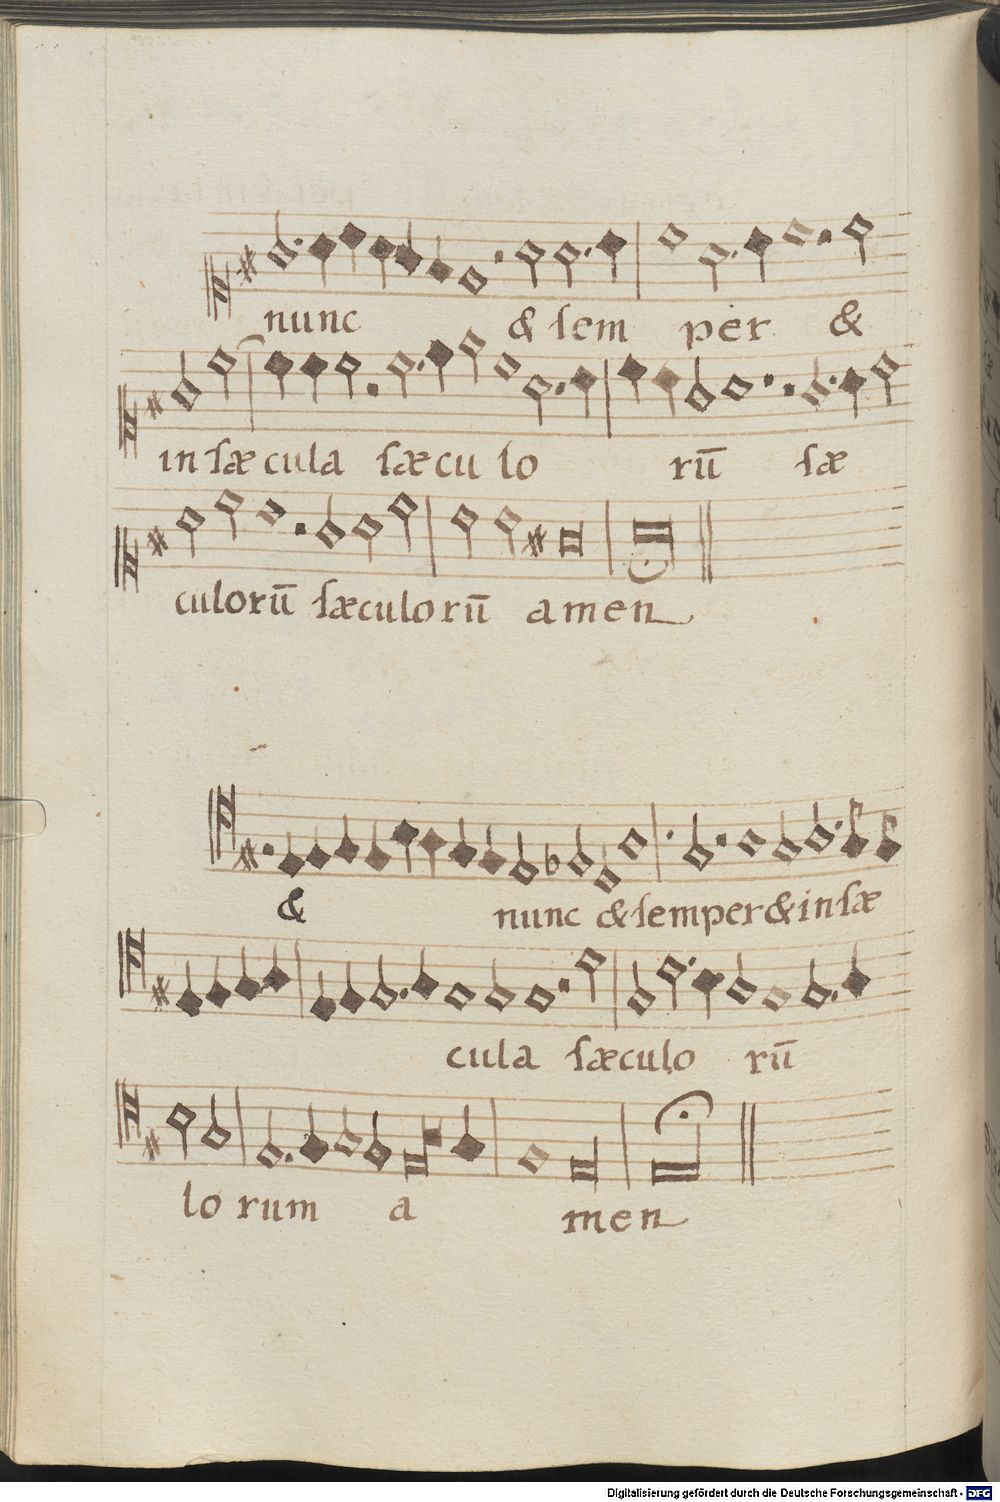 nunc & sem per &
in sæ cula sæ cu lo rū sæ
culorū sæculorū amen
& nunc & semper & in sæ
cula sæculo rū
lo rum a men
Digitalisierung gefördert durch die Deutsche Forschungsgemeinschaft - DFG